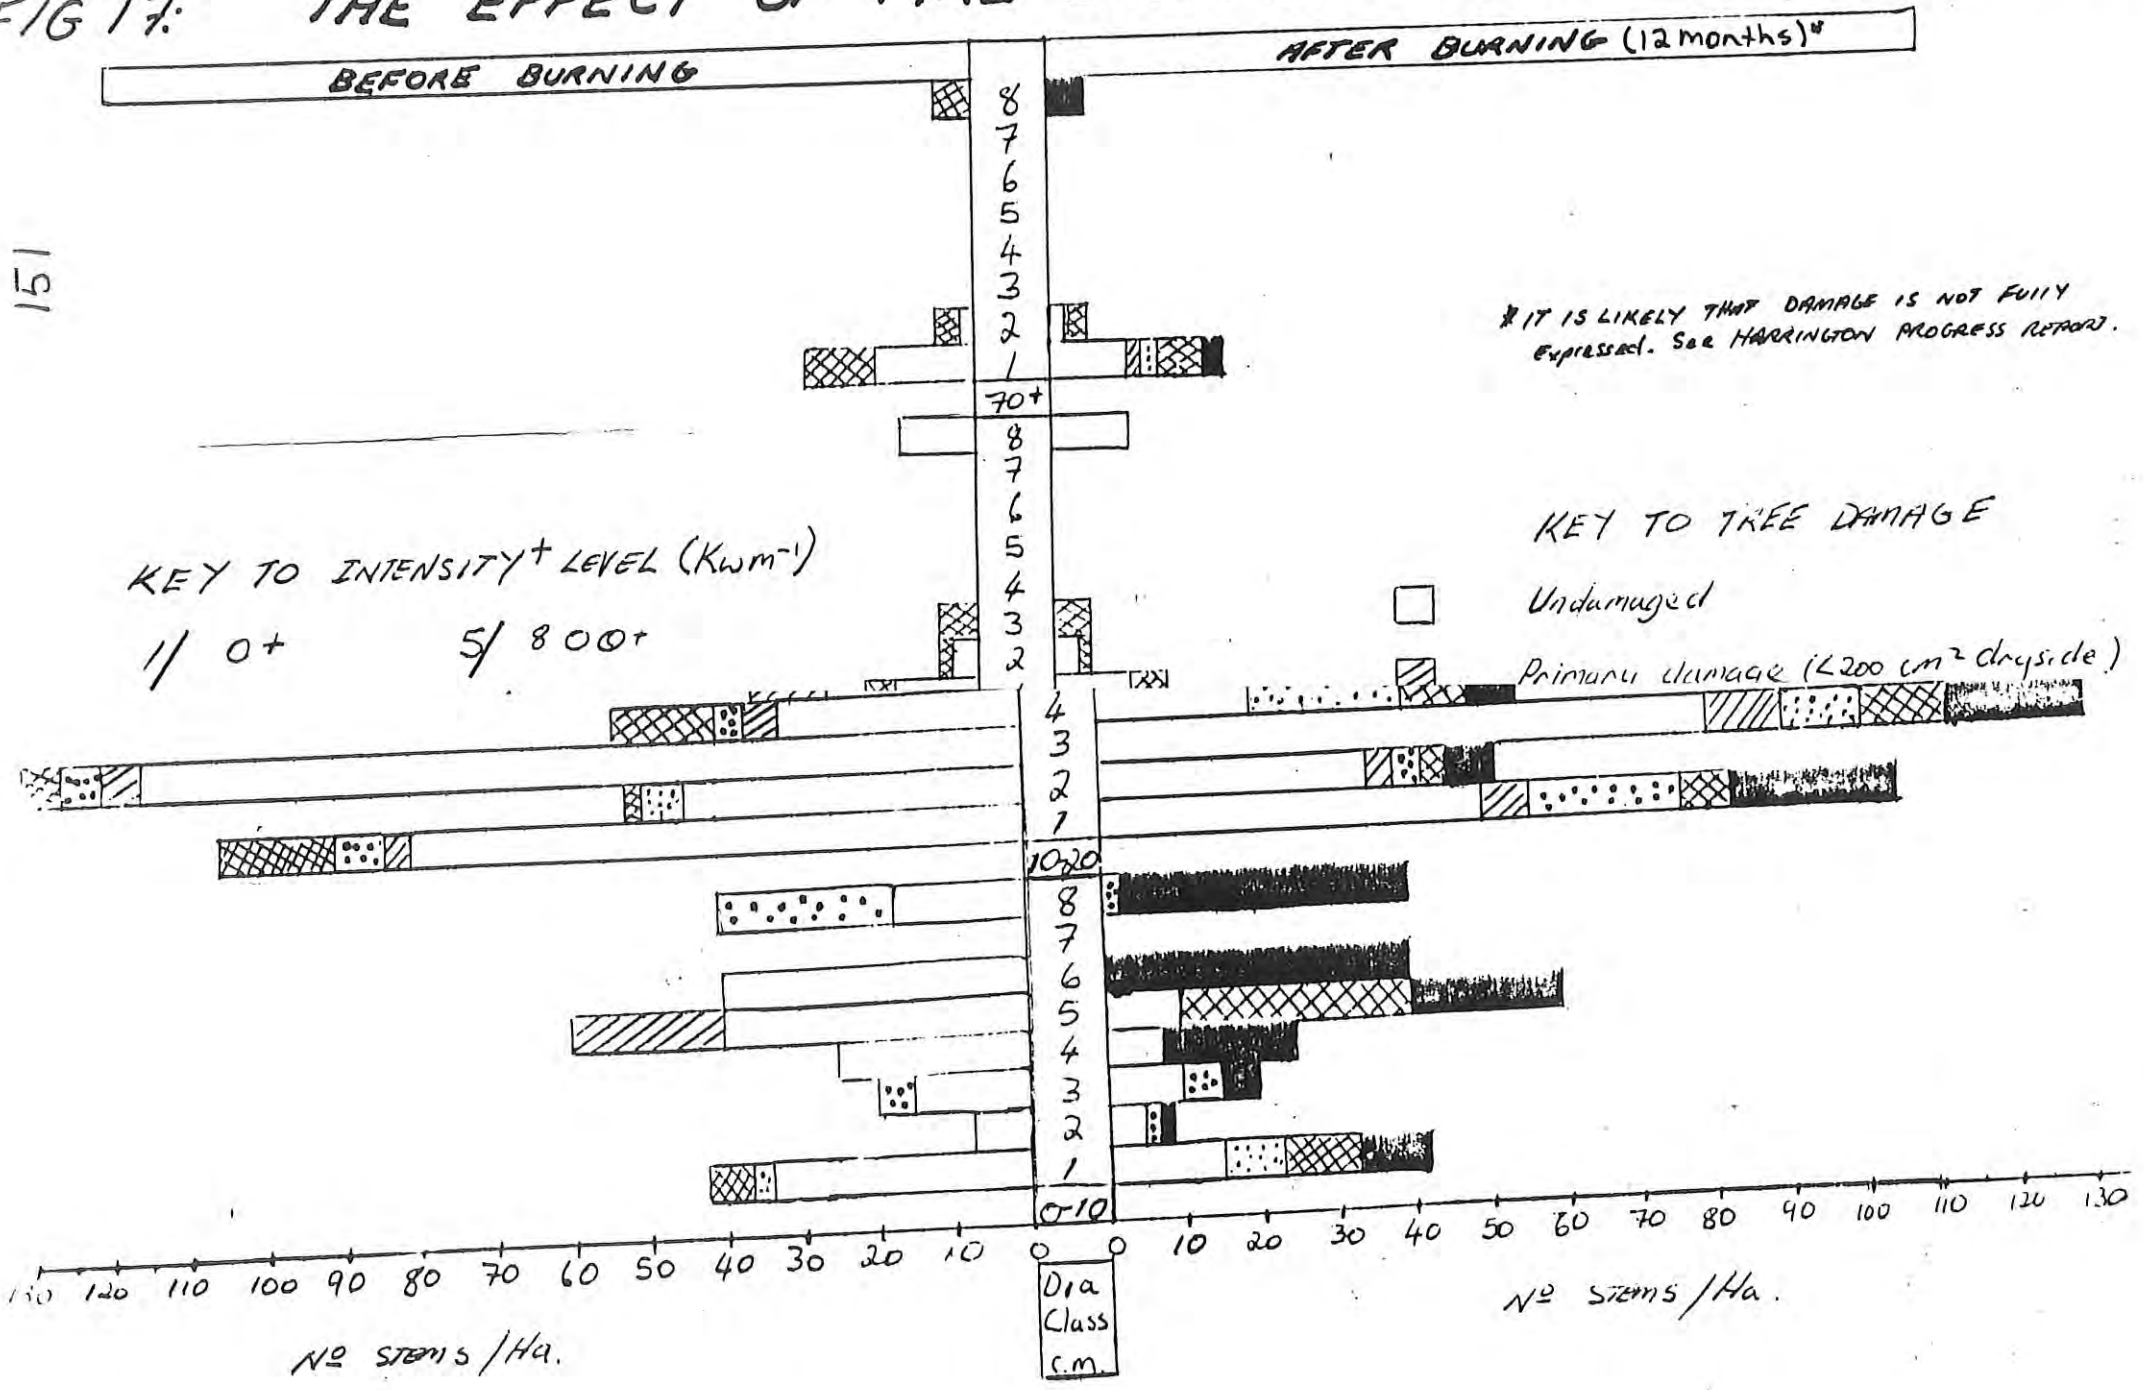 FIG 17: THE EFFECT OF FIRE
BEFORE BURNING
AFTER BURNING (12 months)*
8
7
6
5
4
3
2
1
70+
8
7
6
5
4
3
2
4
3
2
1
10-20
8
7
6
5
4
3
2
1
0-10
151
* IT IS LIKELY THAT DAMAGE IS NOT FULLY
Expressed. See HARRINGTON PROGRESS REPORT.
KEY TO INTENSITY+ LEVEL (Kwm-1)
1/ 0+ 5/ 800+
KEY TO TREE DAMAGE
Undamaged
Primary damage (<200 cm² dryside)
130 120 110 100 90 80 70 60 50 40 30 20 10 0 0 10 20 30 40 50 60 70 80 90 100 110 120 130
Dia
Class
c.m.
Nº STEMS / Ha.
Nº STEMS / Ha.